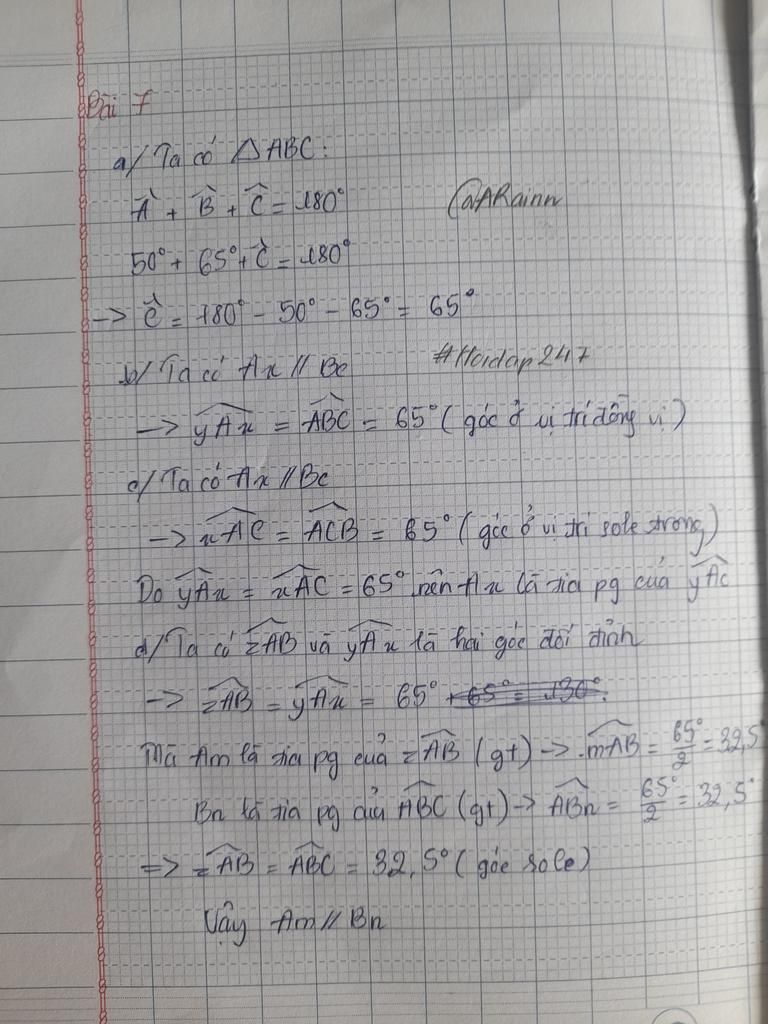 Bài 7
a/ Ta có △ABC:
Â + B̂ + Ĉ = 180°
@ARainn
50° + 65° + Ĉ = 180°
-> Ĉ = 180° - 50° - 65° = 65°
b/ Ta có Ax // Bc
#Hoidap247
-> yAx = ABC = 65° (góc ở vị trí đồng vị)
c/ Ta có Ax // Bc
-> xAC = ACB = 65° (góc ở vị trí sole trong)
Do yAx = xAC = 65° nên Ax là tia pg của yAC
d/ Ta có zAB và yAx là hai góc đối đỉnh
-> zAB = yAx = 65° + 65° = 130°.
Mà Am là tia pg của zAB (gt) -> mAB = 65°/2 = 32,5°
Bn là tia pg của ABC (gt) -> ABn = 65°/2 = 32,5°
=> zAB = ABC = 32,5° (góc sole)
Vậy Am // Bn